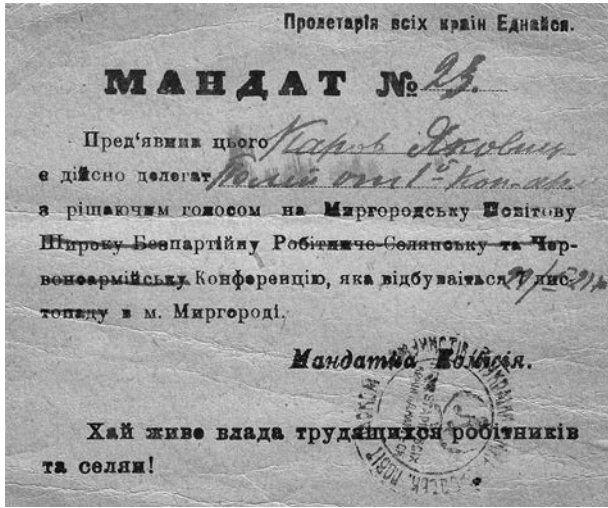 Пролетарія всіх країн Єднайся.
МАНДАТ № 23.
Пред'явник цього Каров Яковлич
є дійсно делегат от 1й Кон. ар.
з рішаючим голосом на Миргородську Повітову
Широку Безпартійну Робітниче-Селянську та Чер-
воноармійську Конференцію, яка відбуваіться 7 лис-
топаду в м. Миргороді.
Мандатна Комісія.
Хай живе влада трудящихся робітників
та селян!